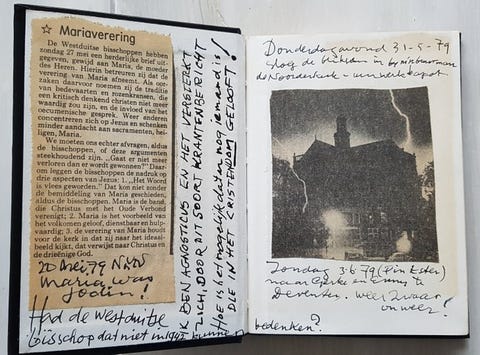 ☆ Mariaverering
De Westduitse bisschoppen hebben
zondag 27 mei een herderlijke brief uit-
gegeven, gewijd aan Maria, de moeder
des Heren. Hierin betreuren zij dat de
verering van Maria afneemt. Als oor-
zaken daarvoor noemen zij de traditie
van bedevaarten en rozenkransen, die
een kritisch denkend christen niet meer
waardig zou zijn, en de invloed van het
oecumenisch gesprek. Weer anderen
concentreren zich op Jezus en schenken
minder aandacht aan sacramenten, hei-
ligen, Maria.
We moeten ons echter afvragen, aldus
de bisschoppen, of deze argumenten
steekhoudend zijn. „Gaat er niet meer
verloren dan er wordt gewonnen?” Daar-
om leggen de bisschoppen de nadruk op
drie aspecten van Jezus: 1. „Het Woord
is vlees geworden.” Dat kon niet zonder
de bemiddeling van Maria geschieden,
aldus de bisschoppen. Maria is de band,
die Christus met het Oude Verbond
verenigt; 2. Maria is het voorbeeld van
het volkomen geloof, dienstbaar en hulp-
vaardig; 3. de verering van Maria houdt
voor de kerk in dat zij naar het ideaal-
beeld kijkt, dat verwijst naar Christus en
de drieënige God.
20 Mei 79 N
Maria was
Jodin!
Had de Westduitse
bisschop dat niet in 1942 kunnen
bedenken?
IK BEN AGNOSTICUS EN HET VERSTERKT
ZICH, DOOR DIT SOORT KRANTENBERICHT
Hoe is het mogelijk dat er nog iemand is!
DIE IN HET CRISTENDOM GELOOFT!
Donderdagavond 31-5-79
sloeg de bliksem in
de Noorderkerk - uurwerk kapot
Zondag 3-6-79 (Pinksteren)
naar Gerke en
Deventer. weer zwaar
onweer!